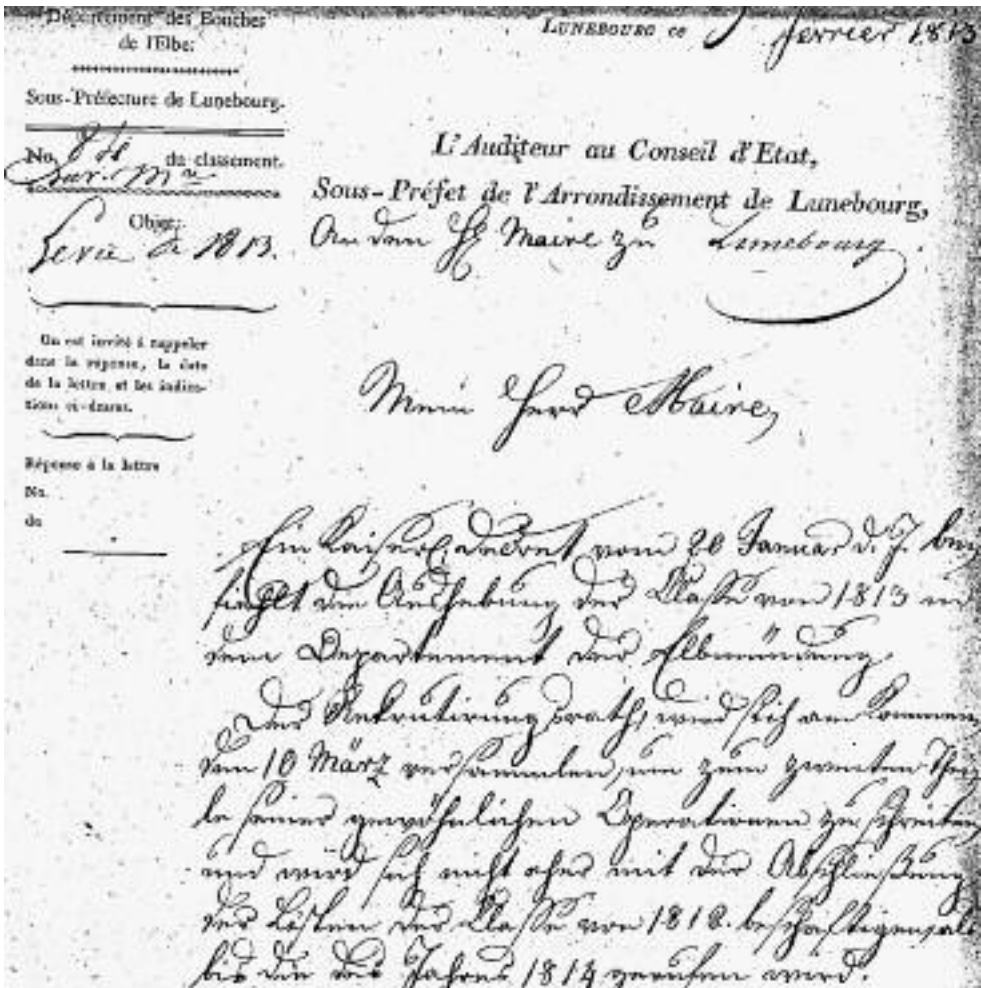 Département des Bouches
de l'Elbe.
Sous-Préfecture de Lunebourg.
No. 84 du classement.
Objet:
Levée de 1813.
On est invité à rappeler
dans la réponse, la date
de la lettre et les indica-
tions ci-dessus.
Réponse à la lettre
No.
du
LUNEBOURG ce fevrier 1813
L'Auditeur au Conseil d'Etat,
Sous-Préfet de l'Arrondissement de Lunebourg,
An den H. Maire zu Lunebourg.
Mein Herr Maire,
Ein Kaiserl. Decret vom 20 Januar d. J. be-
fiehlt die Aushebung der Classe von 1813 in
dem Departement der Elbmündung.
Der Rekrutirungsrath wird sich am kommen-
den 10 März versammlen, um zum zweiten Thei-
le seiner gewöhnlichen Operationen zu schreiten,
und wird sich nicht eher mit der Abschließung
der Listen der Classe von 1813. beschäftigen, als
bis die des Jahres 1814 gerufen wird.